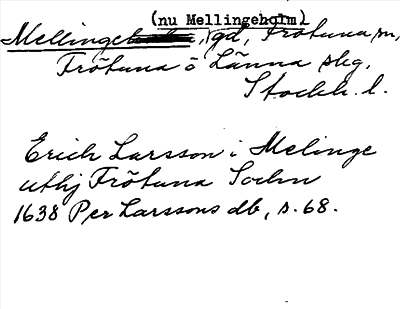 (nu Mellingeholm)
Mellinge, gd, Frötuna sn,
Frötuna o Länna skg,
Stockh. l.
Erich Larsson i Melinge
uthj Frötuna Sochn
1638 Per Larssons db, s. 68.